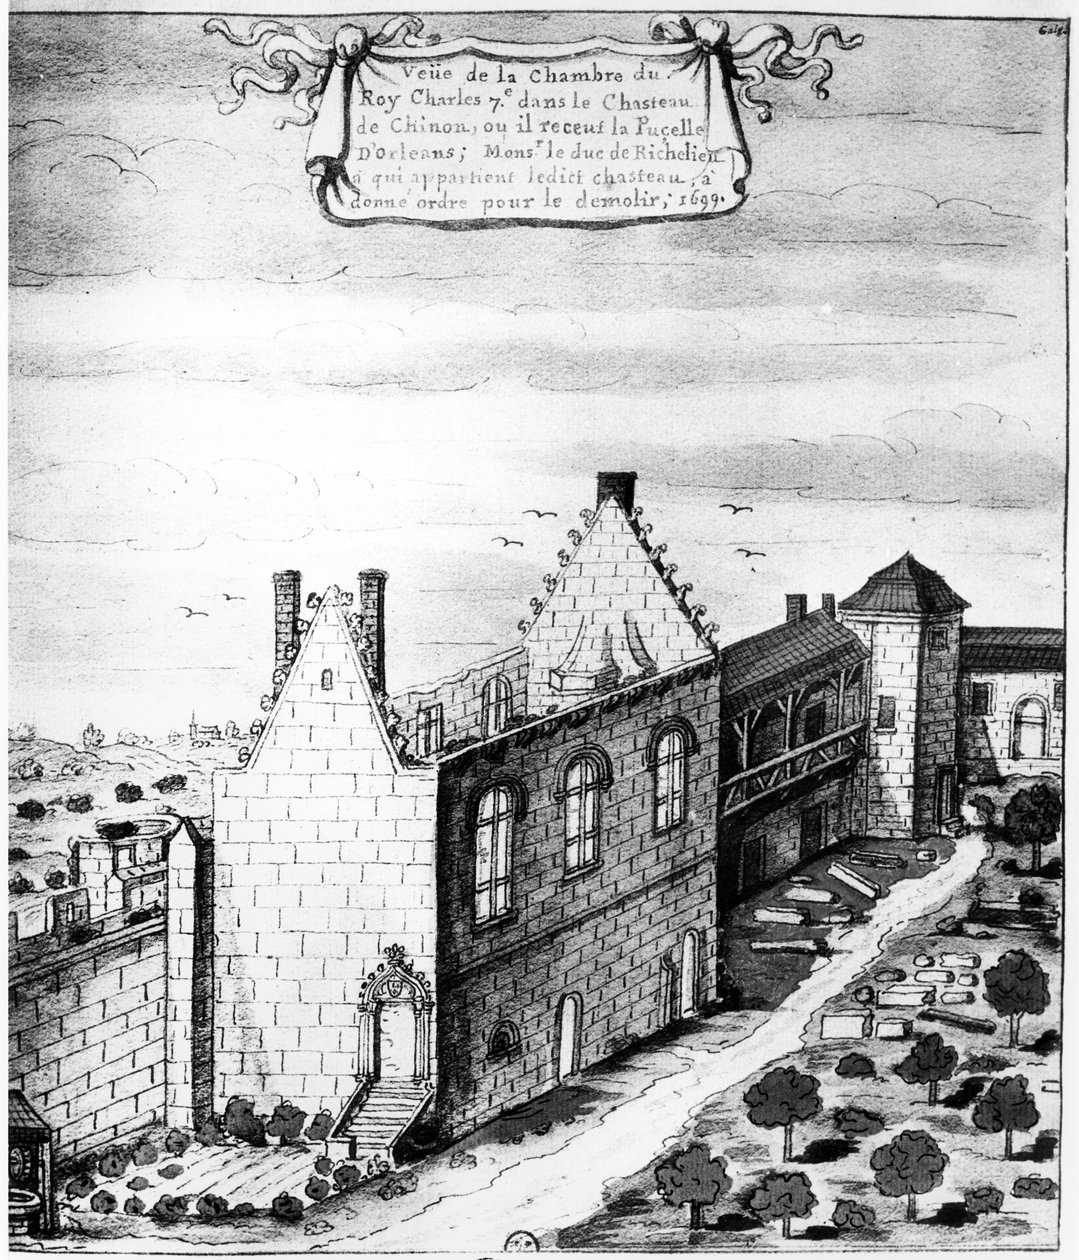 Veüe de la Chambre du
Roy Charles 7.e dans le Chasteau
de Chinon, ou il receut la Puçelle
D'Orleans; Mons.r le duc de Richelieu
a qui appartient ledict chasteau, à
donné ordre pour le demolir, 1699.